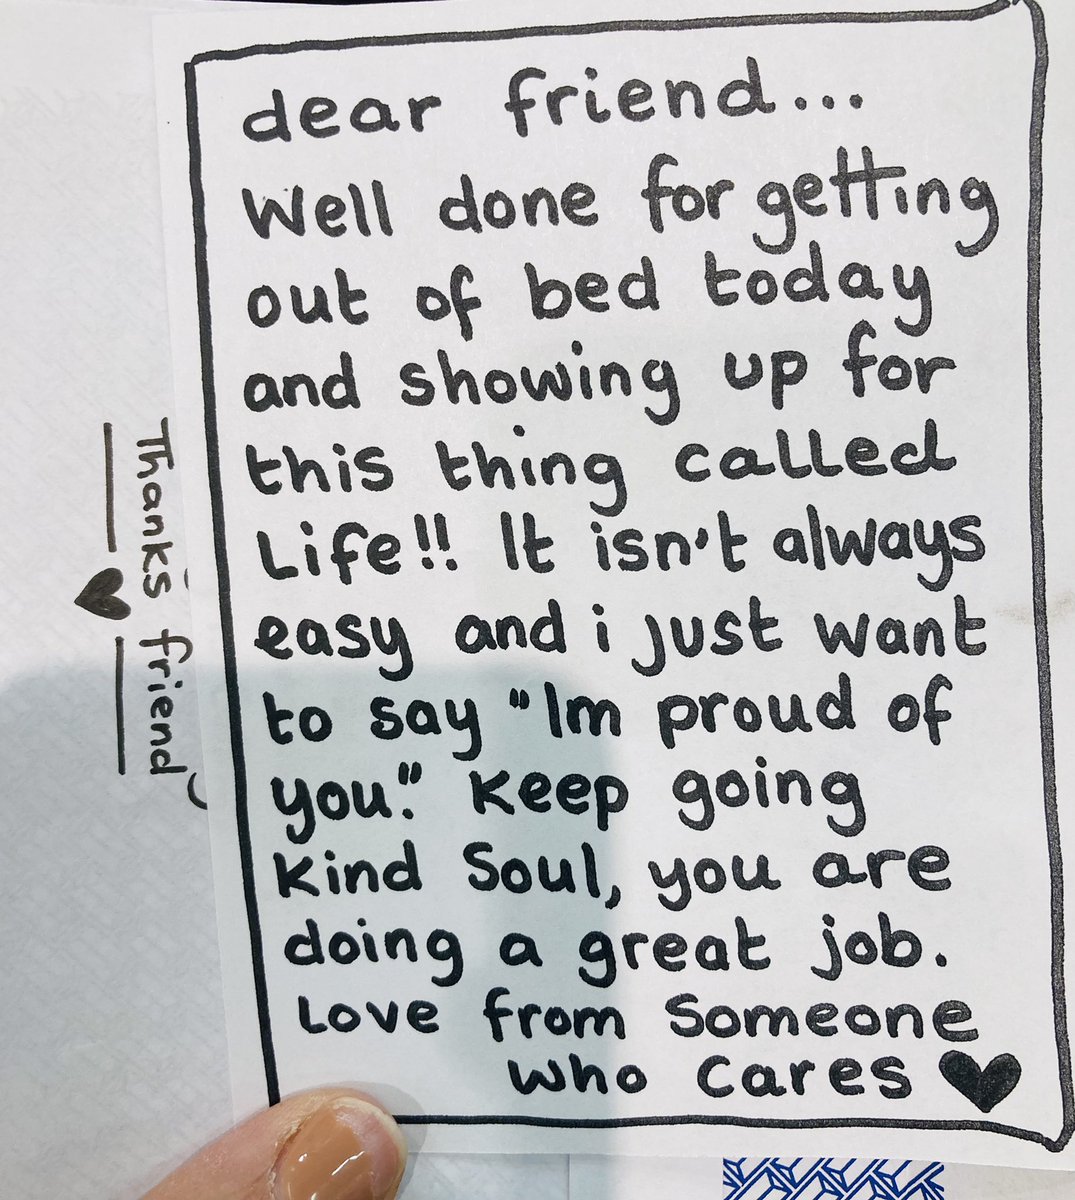 dear friend...
Well done for getting
out of bed today
and showing up for
this thing called
Life!! It isn't always
easy and i just want
to say "Im proud of
you." Keep going
Kind Soul, you are
doing a great job.
Love from Someone
who Cares ♥
Thanks friend
♥